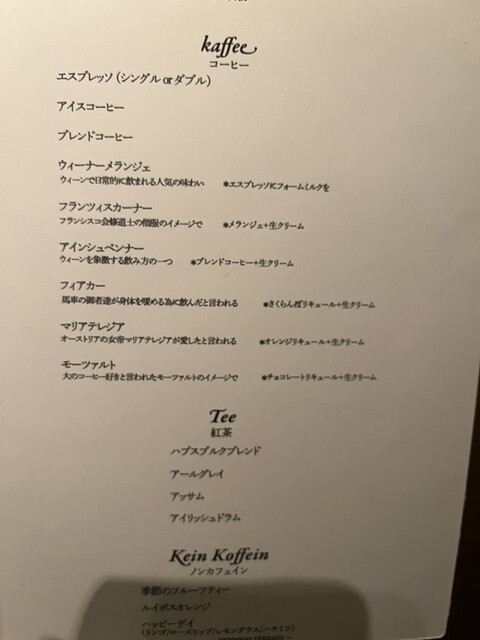 kaffee
コーヒー
エスプレッソ (シングル or ダブル)
アイスコーヒー
ブレンドコーヒー
ウィーナーメランジェ
ウィーンで日常的に飲まれる人気の味わい ＊エスプレッソにフォームミルクを
フランツィスカーナー
フランシスコ会修道士の僧服のイメージで ＊メランジェ+生クリーム
アインシュペンナー
ウィーンを象徴する飲み方の一つ ＊ブレンドコーヒー+生クリーム
フィアカー
馬車の御者達が身体を暖める為に飲んだと言われる ＊さくらんぼリキュール+生クリーム
マリアテレジア
オーストリアの女帝マリアテレジアが愛したと言われる ＊オレンジリキュール+生クリーム
モーツァルト
大のコーヒー好きと言われたモーツァルトのイメージで ＊チョコレートリキュール+生クリーム
Tee
紅茶
ハプスブルクブレンド
アールグレイ
アッサム
アイリッシュドラム
Kein Koffein
ノンカフェイン
季節のフルーツティー
ルイボスオレンジ
ハッピーデイ
(リンゴ/ローズヒップ/レモングラス/ハチミツ)